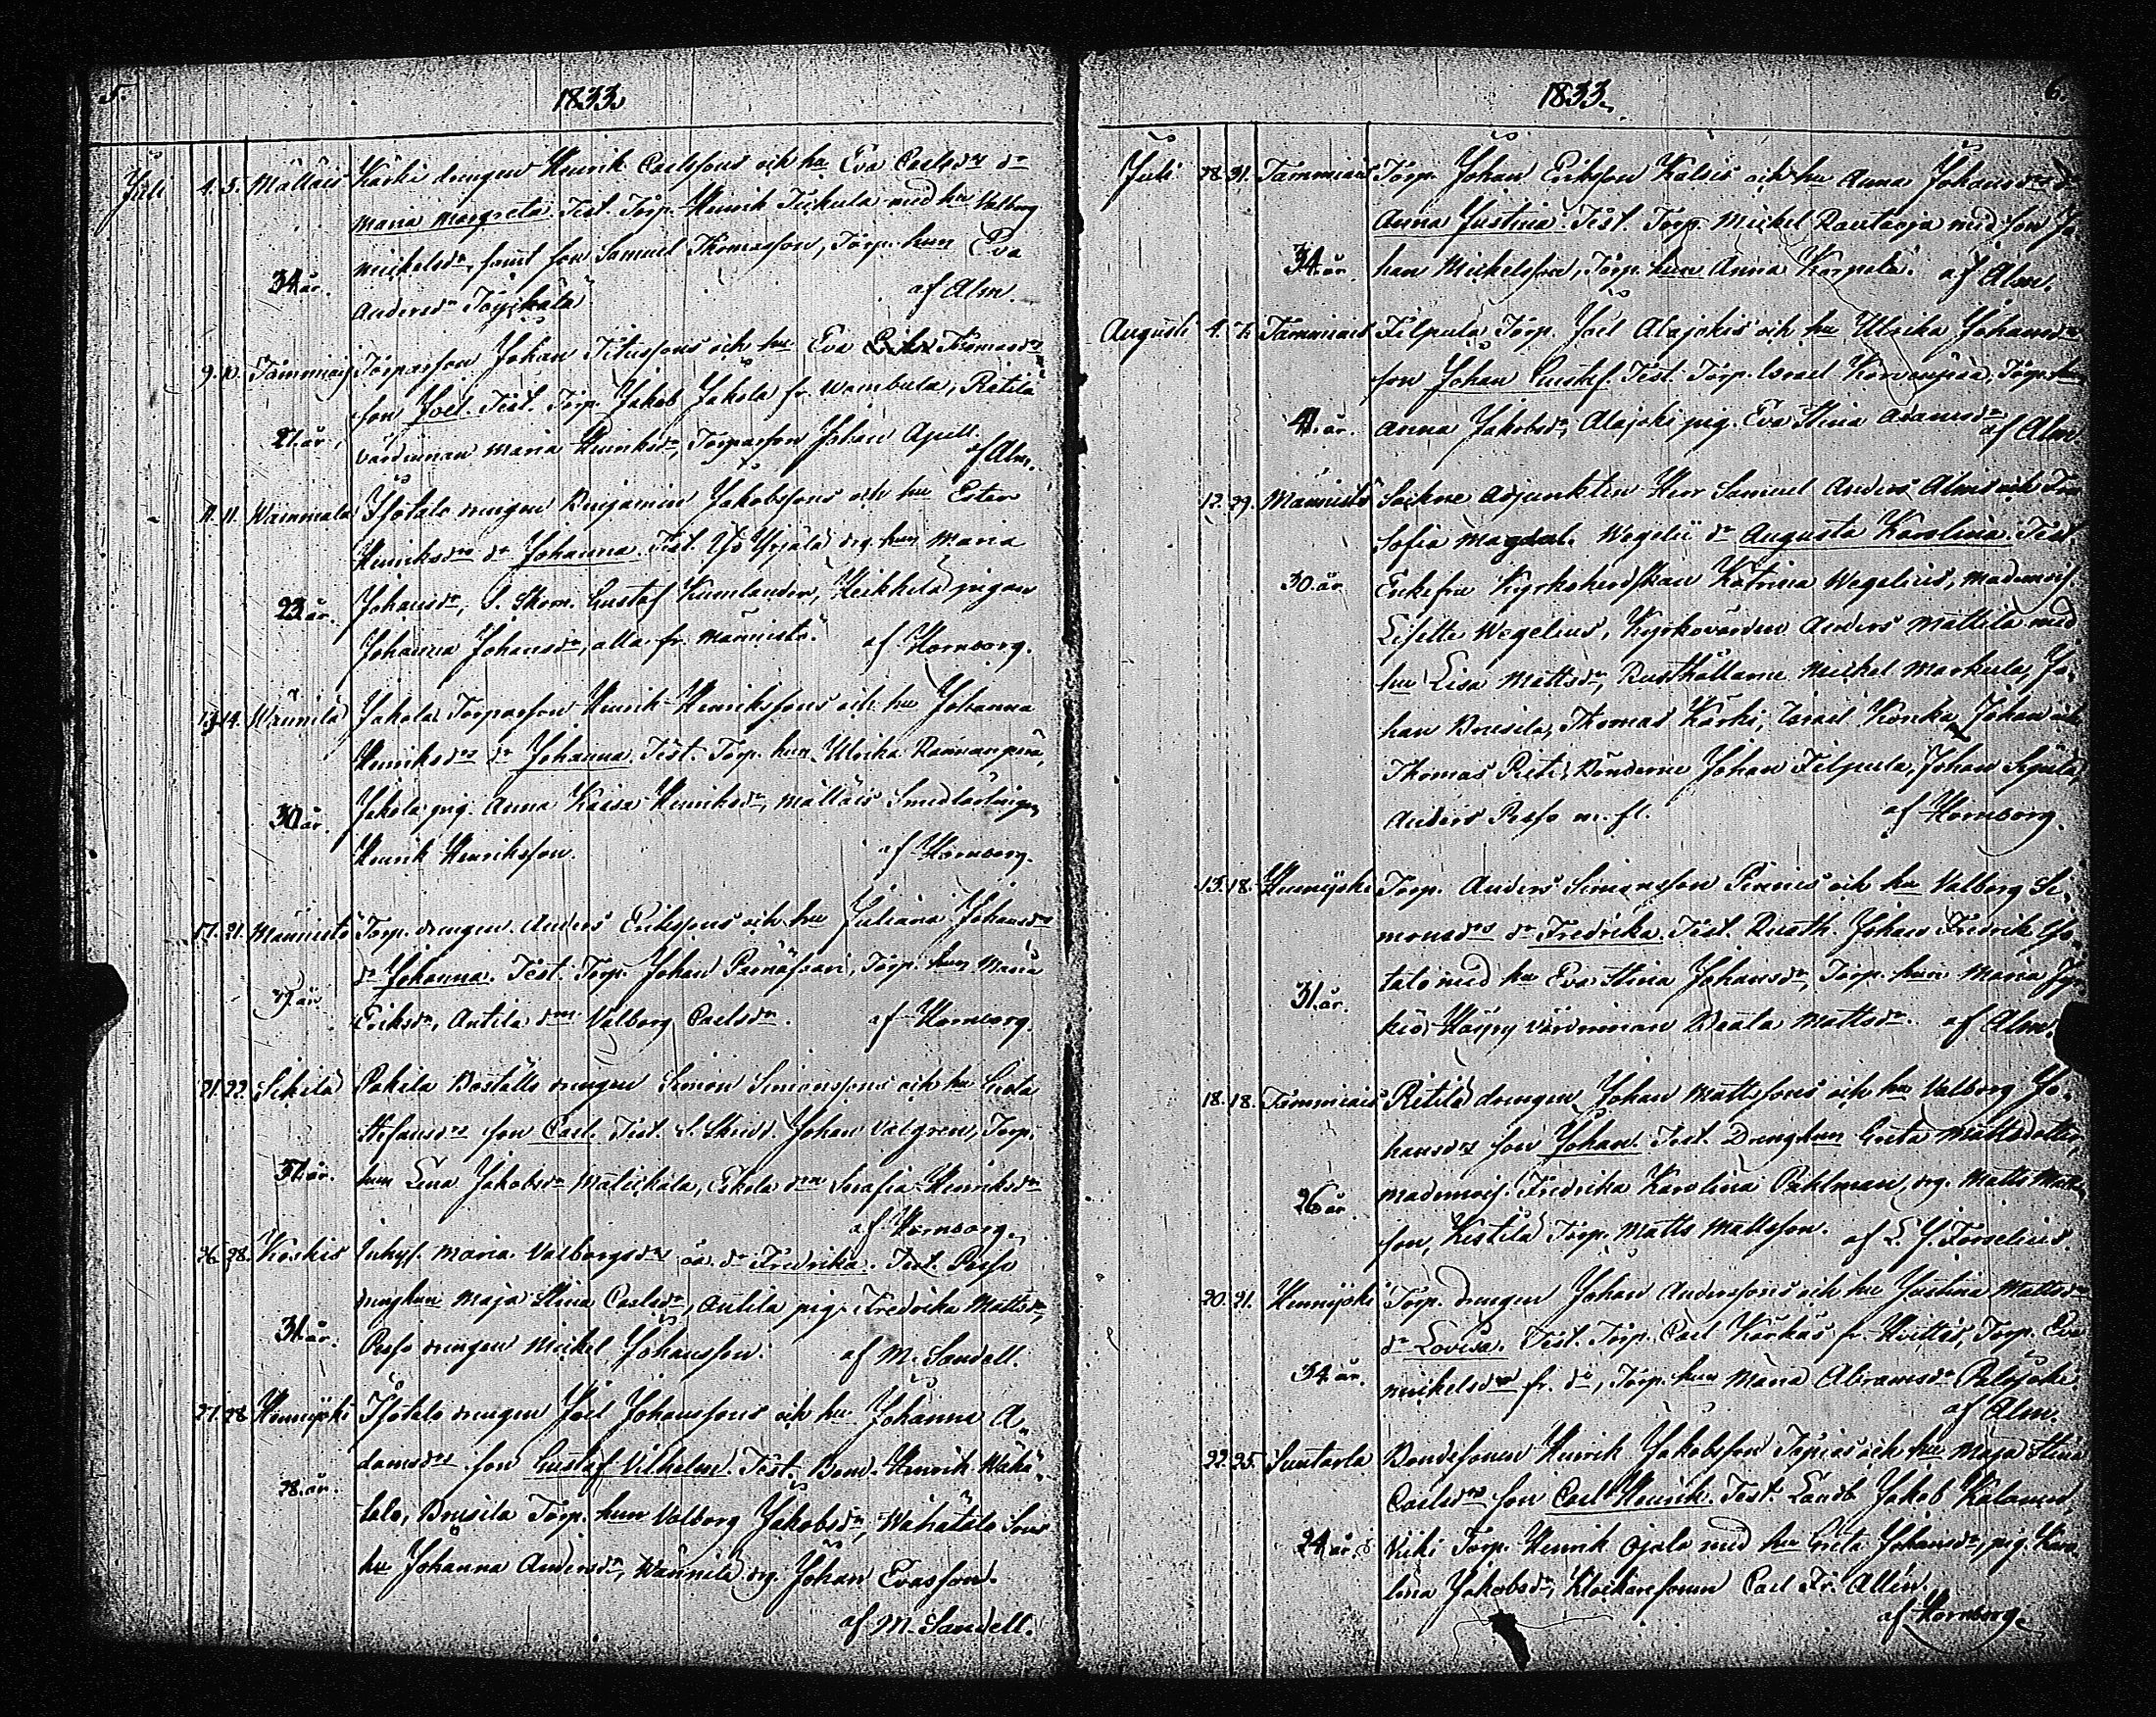 5.
1833.
Juli 4. 5. Mälläis Kärki drengen Henrik Carlssons och hu Eva Carlsdrs dr
Maria Margreta. Test. Torp. Henrik Tickula med hu Valborg
Mickelsdr, samt son Samuel Thomasson, Torp. hun Eva
34 år.
Andersdr Töyskälä af Alm.
9. 10. Tammiais Torparson Johan Titussons och hu Eva Thomasdrs
son Joel. Test. Torp. Jakob Jakola fr. Wambula, Ritila
27. år. värdinnan Maria Henriksdr, Torparson Johan Apell.
af Alm.
11. 11. Wammala Isotalo drengen Benjamin Jakobssons och hu Ester
Henriksdrs dr Johanna. Test. Yrjälä drg. hun Maria
23 år. Johansdr, S. Skom. Gustaf Kumlander, Heikkilä pigan
Johanna Johansdr, alla fr. Männistö. af Hornborg.
13. 14. Wännilä Jakola Torparson Henrik Henrikssons och hu Johanna
Henriksdrs dr Johanna. Test. Torp. hun Ulrika Rannanperä,
30 år. Jakola pig. Anna Kaisa Henriksdr, Mälläis Smedlärlingen
Henrik Henriksson. af Hornborg.
17. 21. Männistö Torp. drengen Anders Erikssons och hu Juliana Johansdrs
dr Johanna. Test. Torp. Johan Pernäsaari, Torp. hun Maria
Eriksdr, Antila drn Valborg Carlsdr. af Hornborg.
21. 22. Sikilä Pakala Boställs drengen Simon Simonssons och hu Greta
Stefansdrs son Carl. Test. S. Skrd. Johan Valgren, Torp.
37. år. hun Lena Jakobsdr Mälickälä, Eskola drn Serafia Henriksdr
af Hornborg.
26. 28. Köskis Inhys. Maria Valborgsdrs oä. dr Fredrika. Test. Perso
drenghun Maja Stina Carlsdr, Antila pig. Fredrika Mattsdr,
31. år. Perso drengen Mickel Johansson. af M. Sandell.
27. 28. Hennijoki Isotalo drengen Joel Johanssons och hu Johanna A„
damsdrs son Gustaf Vilhelm. Test. Bond. Henrik Wähä„
28. år.
talo, Brusila Torp. hun Valborg Jakobsdr, Wähätalo Sons
hu Johanna Andersdr, Wännilä drg. Johan Evasson.
af M. Sandell.
1833.
6.
Juli 28. 31. Tammiais Torp. Johan Eriksson Kalsis och hu Anna Johansdrs dr
Anna Justina. Test. Torp. Mickel Rautaoja med son Jo
34 år. han Mickelsson, Torp. hun Anna Korpela. af Alm.
Augusti 4. Tammiais Filpula Torp. Joel Alajokis och hu Ulrika Johansdrs
son Johan Gustaf. Test. Torp. Israel Korvanpää, Torp. hun
41. år. Anna Jakobsdr, Alajoki pig. Eva Stina Adamsdr
af Alm.
12. 29. Männistö Sockne Adjunkten Herr Samuel Anders Alms och Fru
Sofia Magdal. Wegelii dr Augusta Karolina. Test.
30. år Enkefru Kyrkoherdskan Katrina Wegelius, Mademois.
Lisette Wegelius, Kyrkovärden Anders Mattila med
hu Lisa Mattsdr, Rusthållarne Mickel Markula, Jo„
han Brusila, Thomas Kärki, Israel Könkä, Johan och
Thomas Pieti, Bönderne Johan Filpula, Johan Sipilä
Anders Perso m. fl. af Hornborg.
13. 18. Hennijoki Torp. Anders Simonsson Pinnis och hu Valborg Si„
monsdrs dr Fredrika. Test. Rusth. Johan Fredrik Iso„
31. år. talo med hu Eva Stina Johansdr, Torp. hun Maria
Värdinnan Beata Mattsdr. af Alm.
18. 18. Tammiais Ritila drengen Johan Mattssons och hu Valborg Jo„
hansdrs son Johan. Test. Drenghun Greta Mattsdotter,
26 år. Mademois. Fredrika Karolina Pahlman, drg. Matts Matts
son, Kestilä Torp. Matts Mattsson. af L. J. Forselius.
20. 21. Hennijoki Torp. drengen Johan Anderssons och hu Justina Mattsdrs
dr Lovisa. Test. Torp. Carl Karhus fr. Hvittis, Torp. Eva
34 år. Mickelsdr fr. do, Torp. hun Maria Abramsdr Palojoki.
af Alm.
22. 25. Suntarla Bondesonen Henrik Jakobsson Topias och hu Maja Stina
Carlsdrs son Carl Henrik. Test. Landb. Jakob
24 år. Torp. Henrik Ojala med hu Greta Johansdr, pig. Karo„
lina Jakobsdr, Klockaresonen Carl Fr. Allén.
af Hornborg.